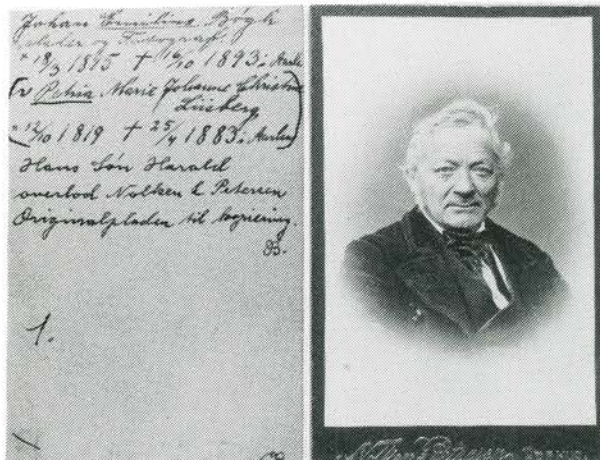 Johan Emilius Bøgh
og Fotograf
* 18/3 1815 † 16/10 1893 i Aarh
(v Petria Marie Johanne Christine
Lüsberg
* 12/10 1819 † 25/4 1883 i Aarhus)
Hans Søn Harald
overlod Nolken & Petersen
Originalpladen til kopiering.
B.
1.